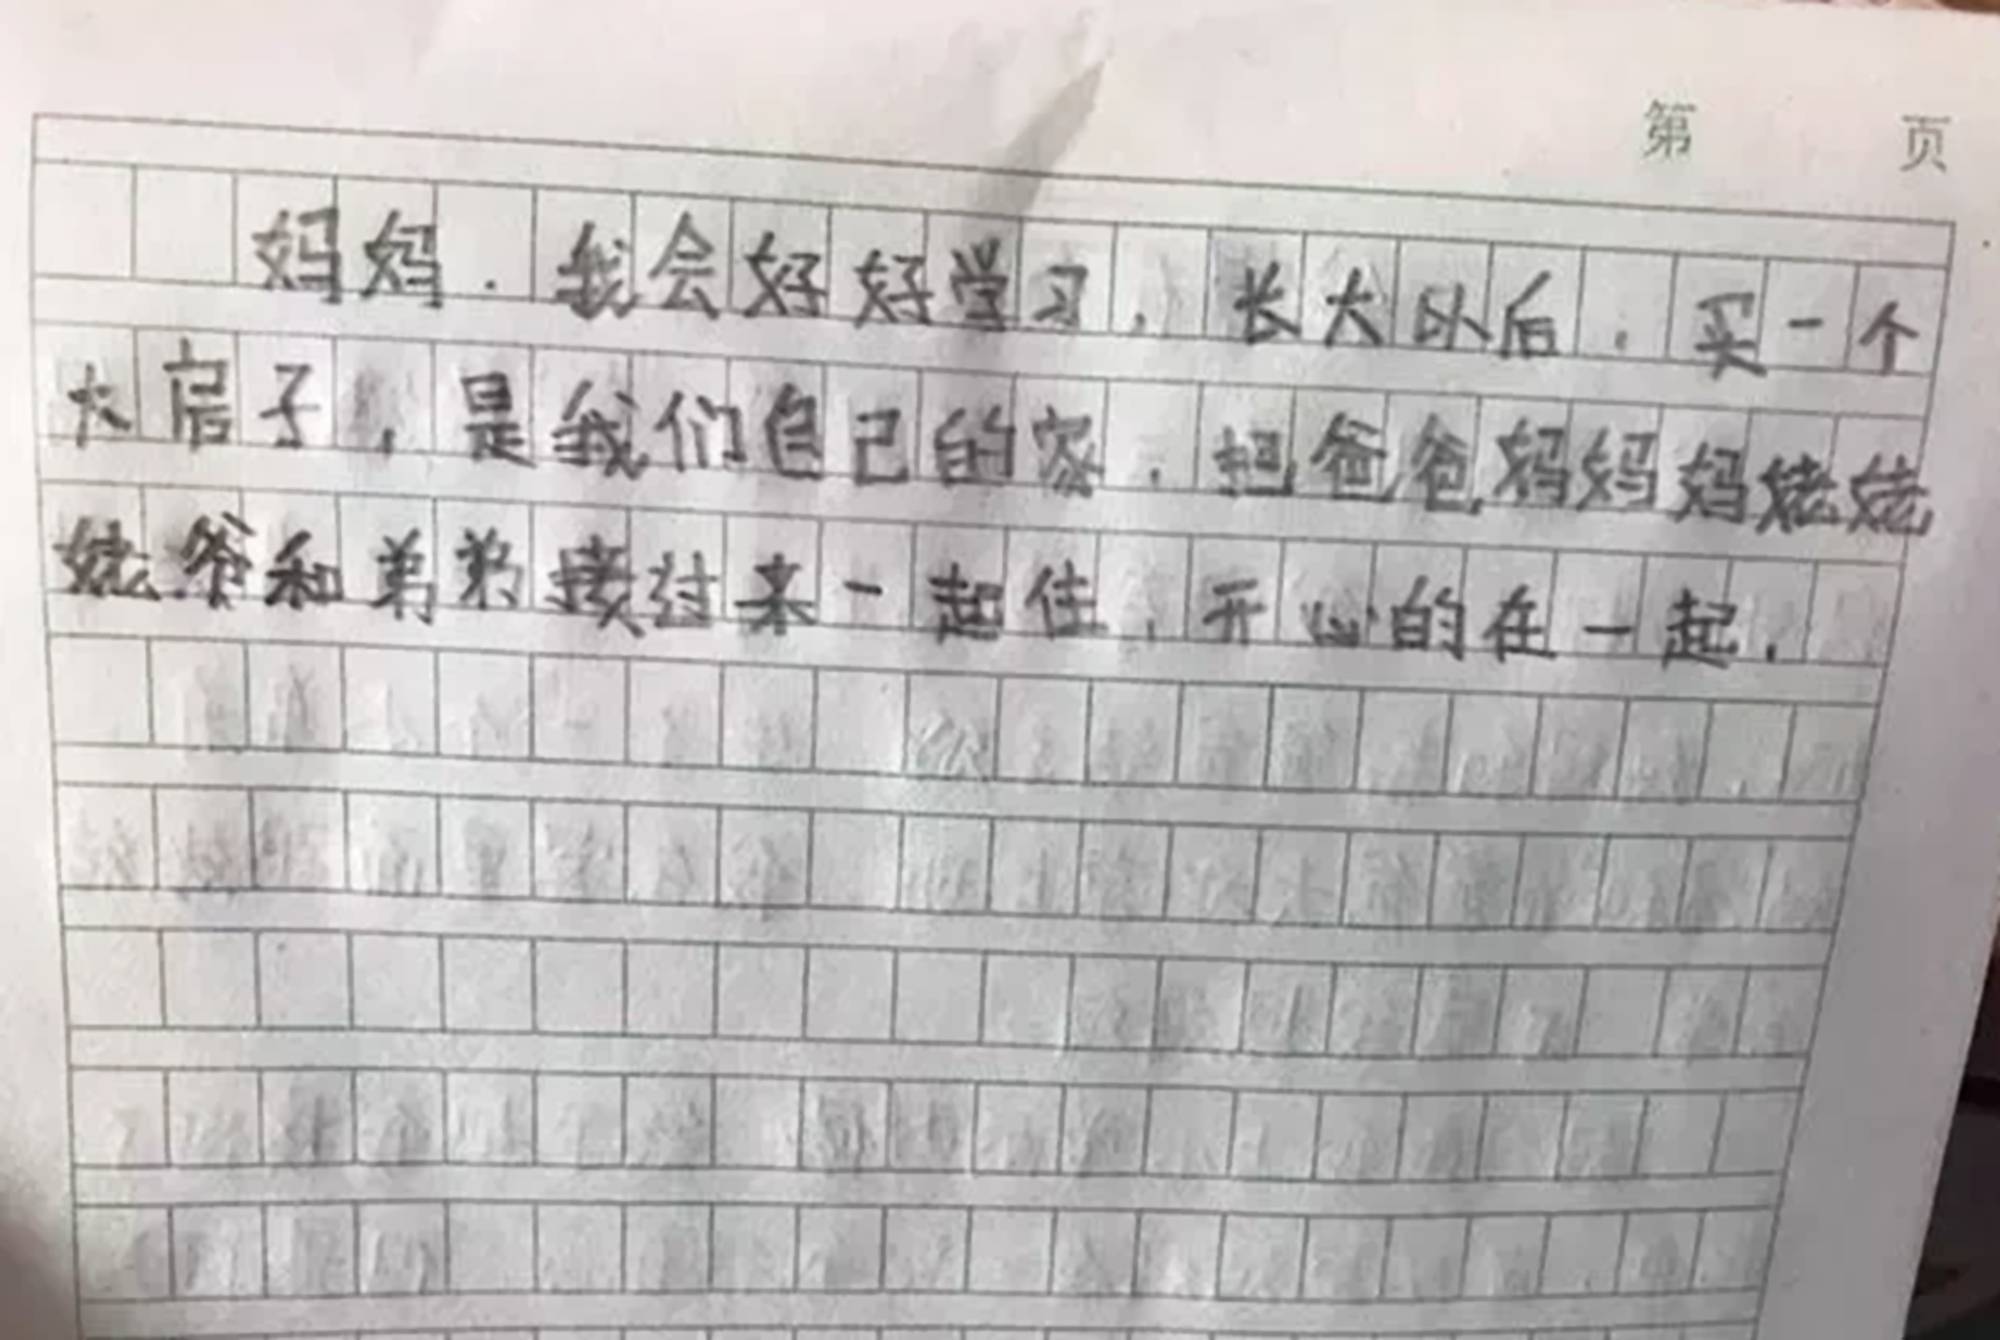 第 页
妈妈.我会好好学习,长大以后,买一个
大房子,是我们自己的家.把爸爸妈妈妈姥姥
姥爷和弟弟接过来一起住,开心的在一起.